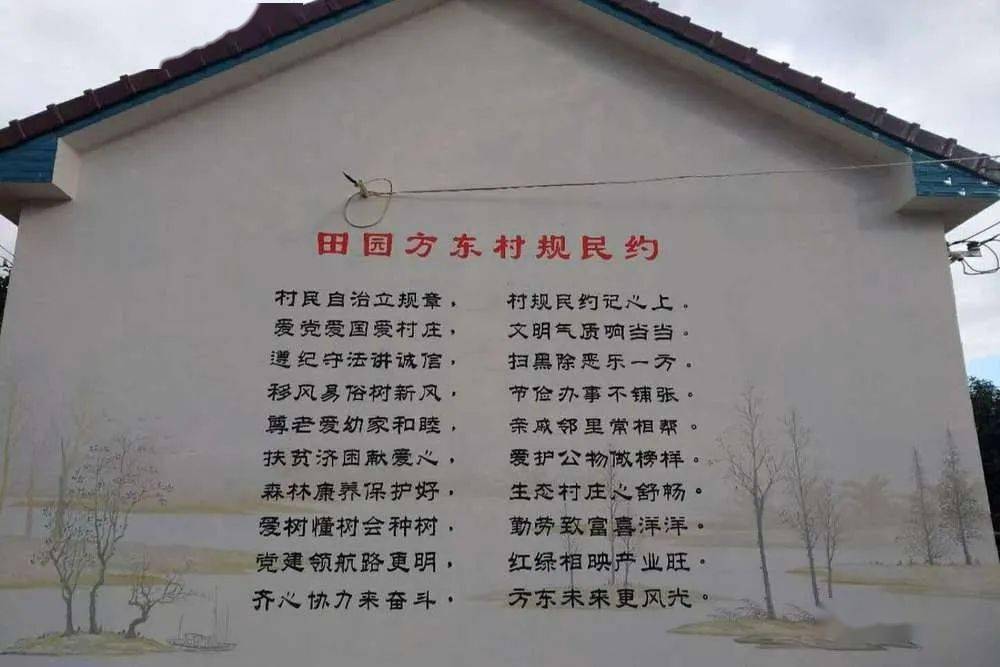 田园方东村规民约
村民自治立规章， 村规民约记心上。
爱党爱国爱村庄， 文明气质响当当。
遵纪守法讲诚信， 扫黑除恶乐一方。
移风易俗树新风， 节俭办事不铺张。
尊老爱幼家和睦， 亲戚邻里常相帮。
扶贫济困献爱心， 爱护公物做榜样。
森林康养保护好， 生态村庄心舒畅。
爱树懂树会种树， 勤劳致富喜洋洋。
党建领航路更明， 红绿相映产业旺。
齐心协力来奋斗， 方东未来更风光。